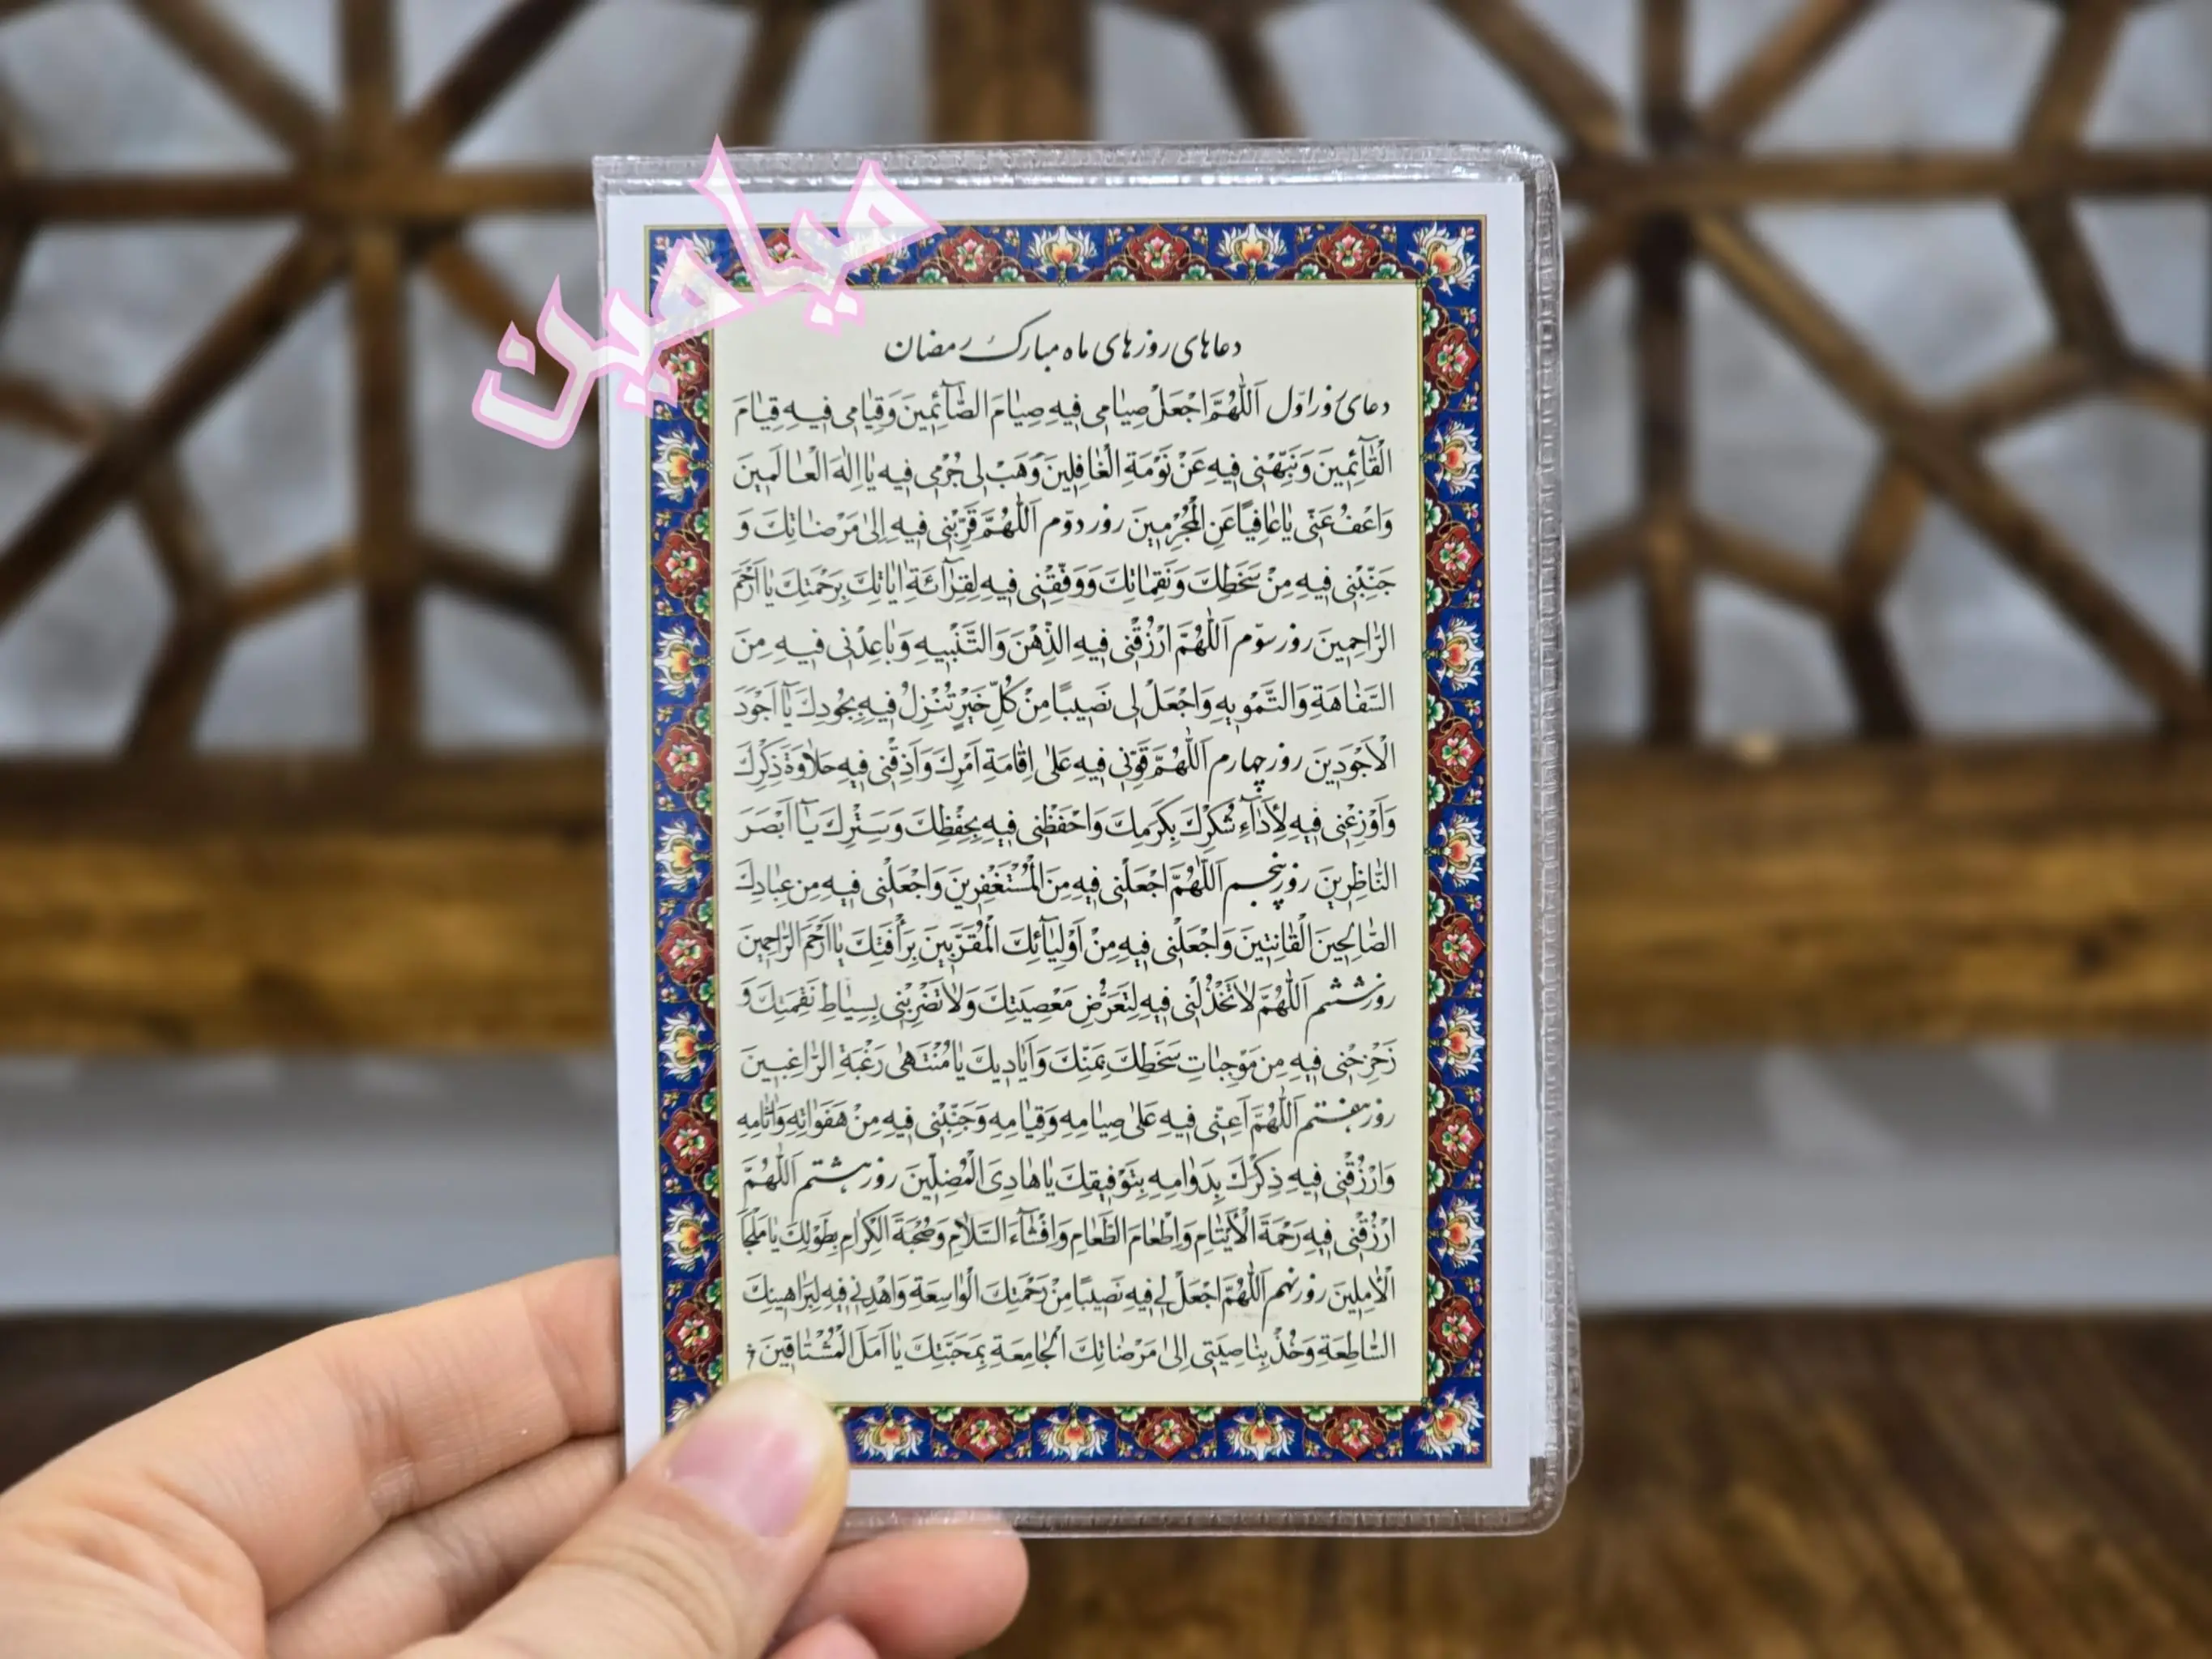 میاحین
دعاهای روزهای ماه مبارک رمضان
دعای روز اوّل اَللّٰهُمَّ اجْعَلْ صِیٰامی فیهِ صِیٰامَ الصّٰآئِمینَ وَقِیٰامی فیهِ قِیٰامَ
الْقٰآئِمینَ وَنَبِّهْنی فیهِ عَنْ نَوْمَةِ الْغٰافِلینَ وَهَبْ لی جُرْمی فیهِ یٰا اِلٰهَ الْعٰالَمینَ
وَاعْفُ عَنّی یٰا عٰافِیًا عَنِ الْمُجْرِمینَ روز دوّم اَللّٰهُمَّ قَرِّبْنی فیهِ اِلیٰ مَرْضٰاتِکَ وَ
جَنِّبْنی فیهِ مِنْ سَخَطِکَ وَنَقِمٰاتِکَ وَوَفِّقْنی فیهِ لِقِرٰآئَةِ اٰیٰاتِکَ بِرَحْمَتِکَ یٰا اَرْحَمَ
الرّٰاحِمینَ روز سوّم اَللّٰهُمَّ ارْزُقْنی فیهِ الذِّهْنَ وَالتَّنْبیهِ وَبٰاعِدْنی فیهِ مِنَ
السَّفٰاهَةِ وَالتَّمْویهِ وَاجْعَلْ لی نَصیبًا مِنْ کُلِّ خَیْرٍ تُنْزِلُ فیهِ بِجُودِکَ یٰآ اَجْوَدَ
الْاَجْوَدینَ روز چهارم اَللّٰهُمَّ قَوِّنی فیهِ عَلیٰ اِقٰامَةِ اَمْرِکَ وَاَذِقْنی فیهِ حَلٰاوَةَ ذِکْرِکَ
وَاَوْزِعْنی فیهِ لِاَدٰآءِ شُکْرِکَ بِکَرَمِکَ وَاحْفَظْنی فیهِ بِحِفْظِکَ وَسَتْرِکَ یٰآ اَبْصَرَ
النّٰاظِرینَ روز پنجم اَللّٰهُمَّ اجْعَلْنی فیهِ مِنَ الْمُسْتَغْفِرینَ وَاجْعَلْنی فیهِ مِن عِبٰادِکَ
الصّٰالِحینَ الْقٰانِتینَ وَاجْعَلْنی فیهِ مِنْ اَوْلِیٰآئِکَ الْمُقَرَّبینَ بِرَأْفَتِکَ یٰا اَرْحَمَ الرّٰاحِمینَ
روز ششم اَللّٰهُمَّ لٰا تَخْذُلْنی فیهِ لِتَعَرُّضِ مَعْصِیَتِکَ وَلٰا تَضْرِبْنی بِسِیٰاطِ نَقِمَتِکَ وَ
زَحْزِحْنی فیهِ مِن مَوْجِبٰاتِ سَخَطِکَ بِمَنِّکَ وَاَیٰادیکَ یٰا مُنْتَهیٰ رَغْبَةِ الرّٰاغِبینَ
روز هفتم اَللّٰهُمَّ اَعِنّی فیهِ عَلیٰ صِیٰامِهِ وَقِیٰامِهِ وَجَنِّبْنی فیهِ مِنْ هَفَوٰاتِهِ وَاٰثٰامِهِ
وَارْزُقْنی فیهِ ذِکْرَکَ بِدَوٰامِهِ بِتَوْفیقِکَ یٰا هٰادِیَ الْمُضِلّینَ روز هشتم اَللّٰهُمَّ
ارْزُقْنی فیهِ رَحْمَةَ الْاَیْتٰامِ وَاِطْعٰامَ الطَّعٰامِ وَاِفْشٰآءَ السَّلٰامِ وَصُحْبَةَ الْکِرٰامِ بِطَوْلِکَ یٰا مَلْجَأَ
الْاٰمِلینَ روز نهم اَللّٰهُمَّ اجْعَلْ لی فیهِ نَصیبًا مِنْ رَحْمَتِکَ الْوٰاسِعَةِ وَاهْدِنی فیهِ لِبَرٰاهینِکَ
السّٰاطِعَةِ وَخُذْ بِنٰاصِیَتی اِلیٰ مَرْضٰاتِکَ الْجٰامِعَةِ بِمَحَبَّتِکَ یٰا اَمَلَ الْمُشْتٰاقینَ